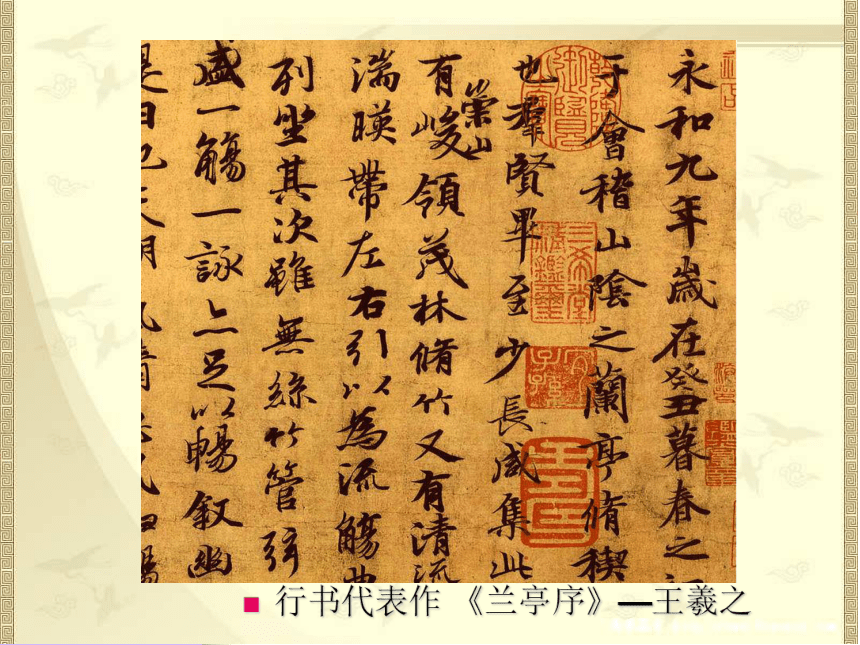 永和九年歲在癸丑暮春之
于會稽山陰之蘭亭脩禊
也羣賢畢至少長咸集此
有崇山峻領茂林脩竹又有清流
湍暎帶左右引以為流觴
列坐其次雖無絲竹管弦
盛一觴一詠亦足以暢叙幽
是日也天朗
三希堂精鑑璽
宜子孫
行书代表作 《兰亭序》—王羲之